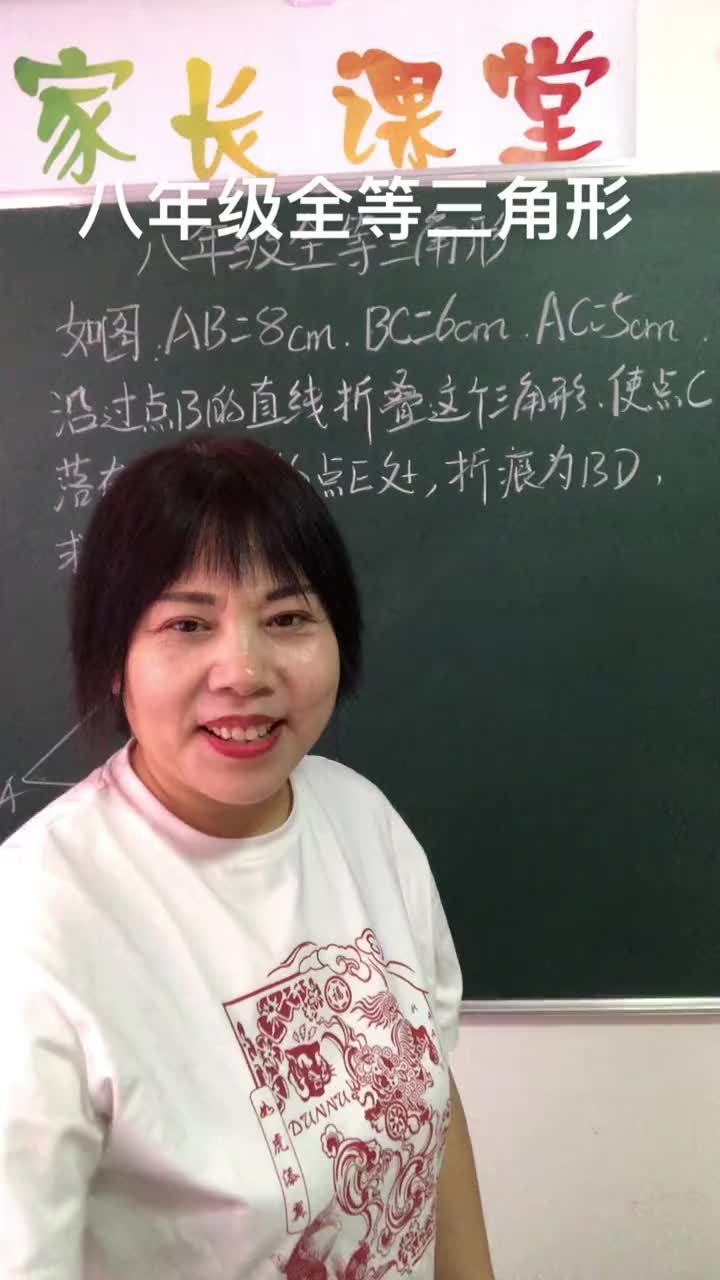 家长课堂
八年级全等三角形
八年级全等三角形
如图.AB=8cm.BC=6cm.AC=5cm.
沿过点B的直线折叠这个三角形.使点C
落在 点E处,折痕为BD,
求
A
DUNNU
如虎添翼
福